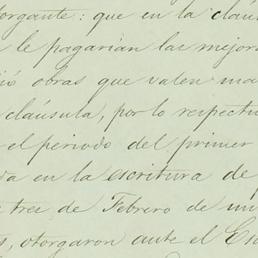 organte: que en la cláus
le pagarian las mejora
ió obras que valen ma
cláusula, por lo respectiv
el periodo del primer
da en la escritura de
tres de Febrero de mi
s, otorgaron ante el Es